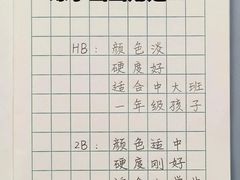 HB：颜色淡
硬度好
适合中大班
一年级孩子
2B：颜色适中
硬度刚好